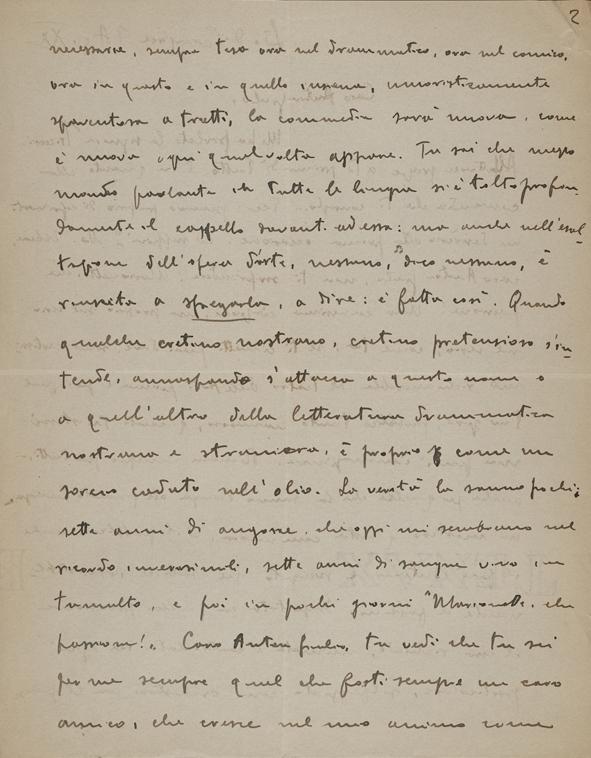 2
necessarie, sempre tesa ora nel drammatico, ora nel comico,
ora in questo e in quello insieme, umoristicamente
spaventosa a tratti, la commedia sarà nuova, come
è nuova ogni qualvolta appare. Tu sai che mezzo
mondo parlante in tutte le lingue si è tolto profon-
damente il cappello davanti ad essa: ma anche nell'esal-
tazione dell'opera d'arte, nessuno, dico nessuno, è
riuscito a spiegarla, a dire: è fatta così. Quando
qualche cretino nostrano, cretino pretensioso s'in-
tende, annaspando s'attacca a questo nome o
a quell'altro della letteratura drammatica
nostrana e straniera, è proprio come un
sorcio caduto nell'olio. La verità la sanno pochi;
sette anni di angosce, che oggi mi sembrano nel
ricordo inverosimili, sette anni di sangue vivo in
tumulto, e poi in pochi giorni "Marionette, che
passione!". Caro Anton Giulio, tu vedi che tu sei
per me sempre quel che fosti sempre un caro
amico, che cresce nel mio animo come